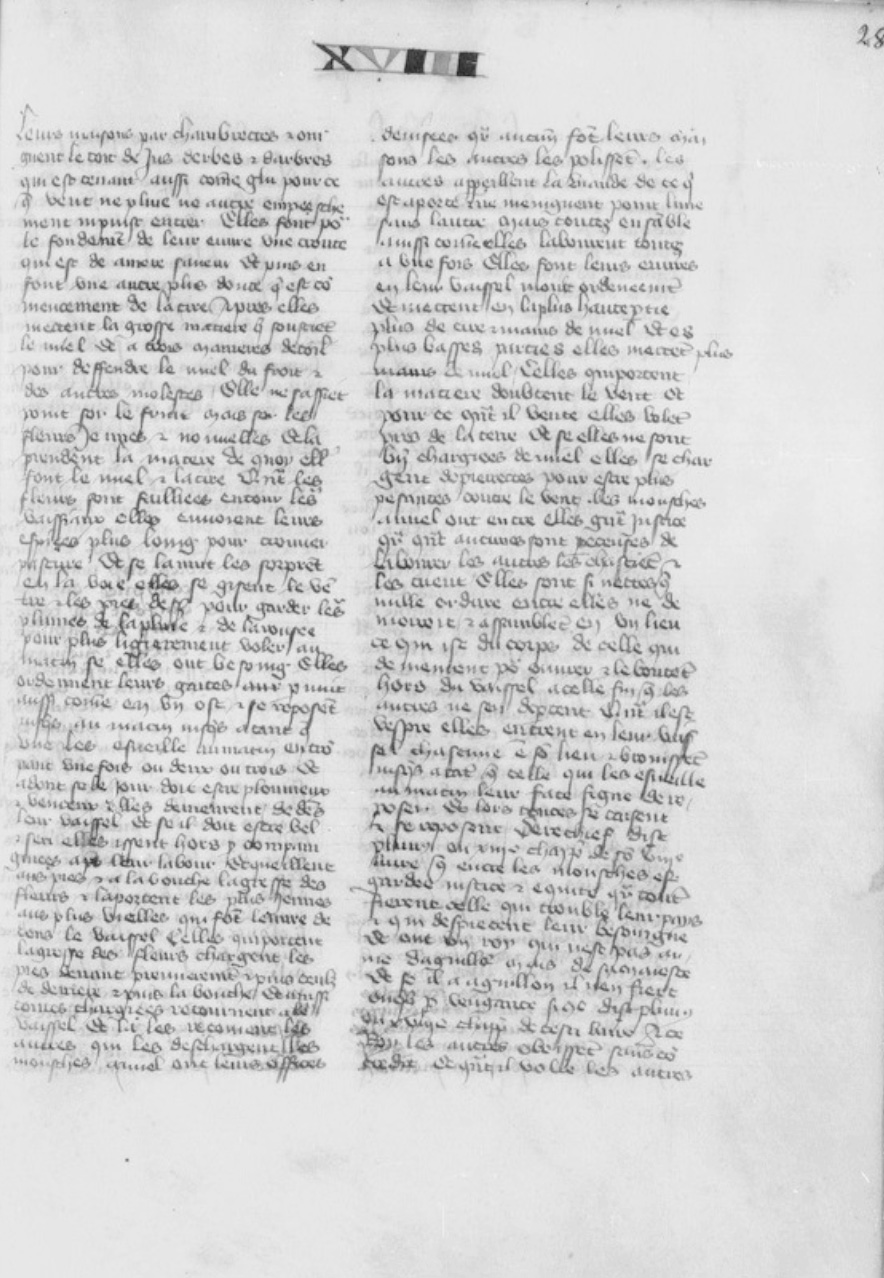 XVIII
28
leurs maisons par chambrectes & oin
gnent le toit de jus derbes & darbres
qui est tenant aussi cõme glu pour ce
q̃ vent ne pluie ne autre empesche
ment ny puist entrer Elles font po᷑
le fondemẽt de leur euure vne crouste
qui est de amere saueur Et puis en
font vne autre plus douce q̃ est cõ
mencement de la cire Apres elles
mectent la grosse matiere q̃ soustiẽt
le miel Et a trois matieres de toil
pour deffendre le miel du froit &
des autres molestes Elle ne sassiet
point sor le fruit mais sor les
fleurs Jennes & nouuelles Et la
prendent la matere de quoy ell'
font le miel & la cire Quãt les
fleurs sont cuillies entour les
vaissiaux elles enuoient leurs
espies plus loing pour trouuer
pasture Et se la nuit les sorprẽt
en la voie elles se gisent le vẽ
tre & les pies dess' pour garder les
plumes de la pluie & de la rousee
pour plus ligierement voler au
matin se elles ont besoing Elles
ordennent leurs gaites par nuit
aussi cõme en vn ost & se reposẽt
jusq̃s au matin jusq̃s a tant q̃
vne les esueille au matin en trõ
pant vne fois ou deux ou trois Et
adont se le jour doit estre plouuieux
& venteux Elles demeurent dedẽs
leur vaissel Et se il doit estre bel
& seri elles issent hors
apꝰ leur labour Et queillent
aus pies & a la bouche la gresse des
fleurs & laportent les plus jennes
aus plus vielles qui fõt leuure de
dens le vaissel Celles qui portent
la gresse des fleurs chargent les
pies deuant premieremẽt & puis ceulz
de derriere & puis la bouche Et aussi
toutes chargiees retournent a le'
vaissel Et la les recoiuent les
autres qui les deschargent Les
mousches a miel ont leurs offices
deuisees q̃r aucun fõt leurs mai
sons les autres les polissẽt. les
autres apperllent la viande de ce q̃
est aporte & ne meniguent point lune
sans lautre mais toutes ensãble
aussi cõme elles labourent toutes
a vne fois Elles font leurs euures
en leur vaissel mout ordeneemẽt
Et mectent en la plus haute ptie
plus de cire & mains de miel Et es
plus basses parties elles mectẽt plus
mains de miel Celles qui portent
la matiere doubtent le vent Et
pour ce quãt il vente elles volẽt
pres de la terre Et se elles ne sont
bñ chargiees de miel elles se char
gent de pierrectes pour estre plus
pesantes contre le vent. les mousches
a miel ont entre elles grãt justice
q̃r quãt aucunes sont peceuses de
labourer les autres les chastiẽt &
les tuent Elles sont si nectes q̃
nulle ordure entre elles ne de
mouroit & assamblẽt en vn lieu
ce qui ist du corps de celle qui
demeurent po᷑ ouurer & le boutẽt
hors du vaissel a celle fin q̃ les
autres ne sen deptent Quãt il est
vespre elles entrent en leur vais
sel chascune ẽ sõ lieu
jusq̃s a tãt q̃ celle qui les esueille
au matin leur face signe de re
poser. Et lors toutes se taisent
& se reposent Derechief dist
plinius ou xiiie chapꝰ de sõ
liure q̃ entre les mousches est
gardee justice & equite q̃r
fierent celle qui trouble leur pays
& qui desprecent leur besoingne
Et ont vn roy qui nest pas ar
me daguillõ mais de
Et se il a aguillon il nen fiert
onq̃s p vengance si cõe dist plinius
ou xviiie chapꝰ de cestui liure Et ce
roy les autres obeissẽt sans cõ
tredit Et quãt il volle les autres